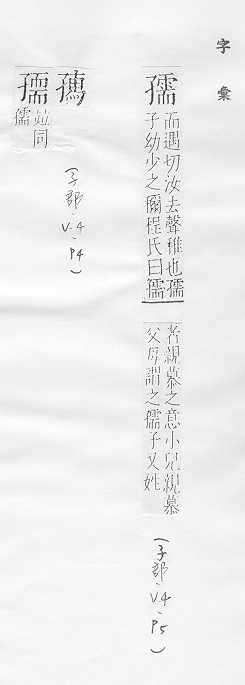 字彙
孺
而遇切汝去聲稚也孺
子幼少之稱程氏曰孺
者親慕之意小兒親慕
父母謂之孺子又姓
(子部、V.4、P5)
竝同
孺
(子部、V.4、P4)